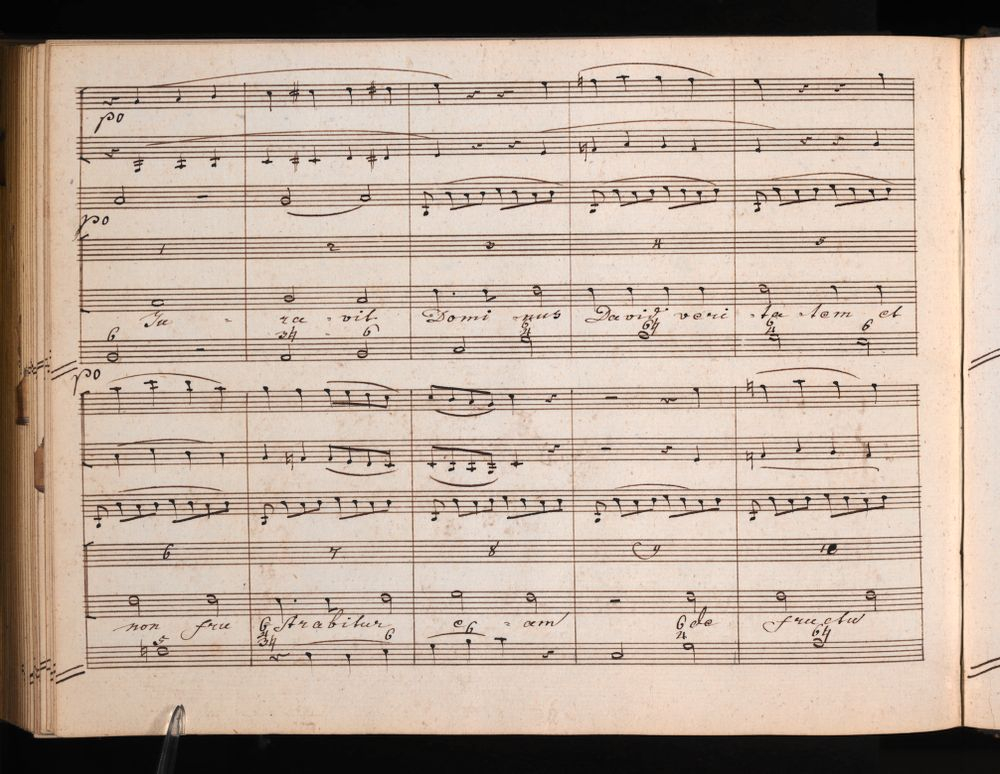 po
po
1 2 3 4 5
Ju - ra - vit Domi nus David veri - ta - tem et
6 34 6 6 4 64 6 4 6
po
6 7 8 9 10
non fru strabitur e - am de fructu
5 6 4 34 6 6 6 4 64